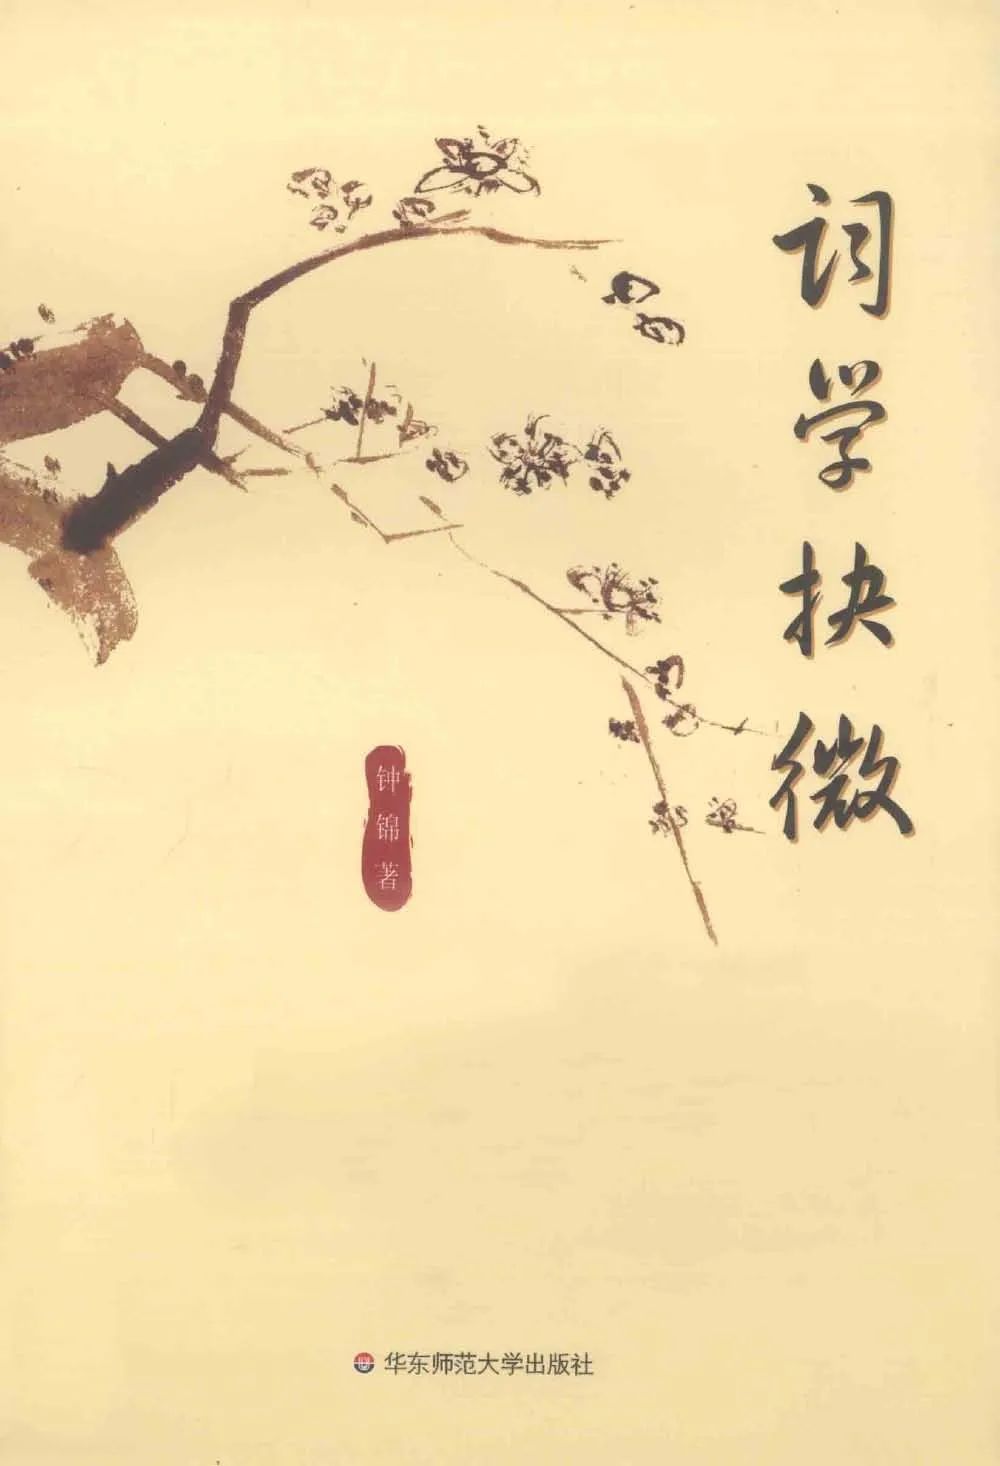 词学抉微
钟锦著
华东师范大学出版社